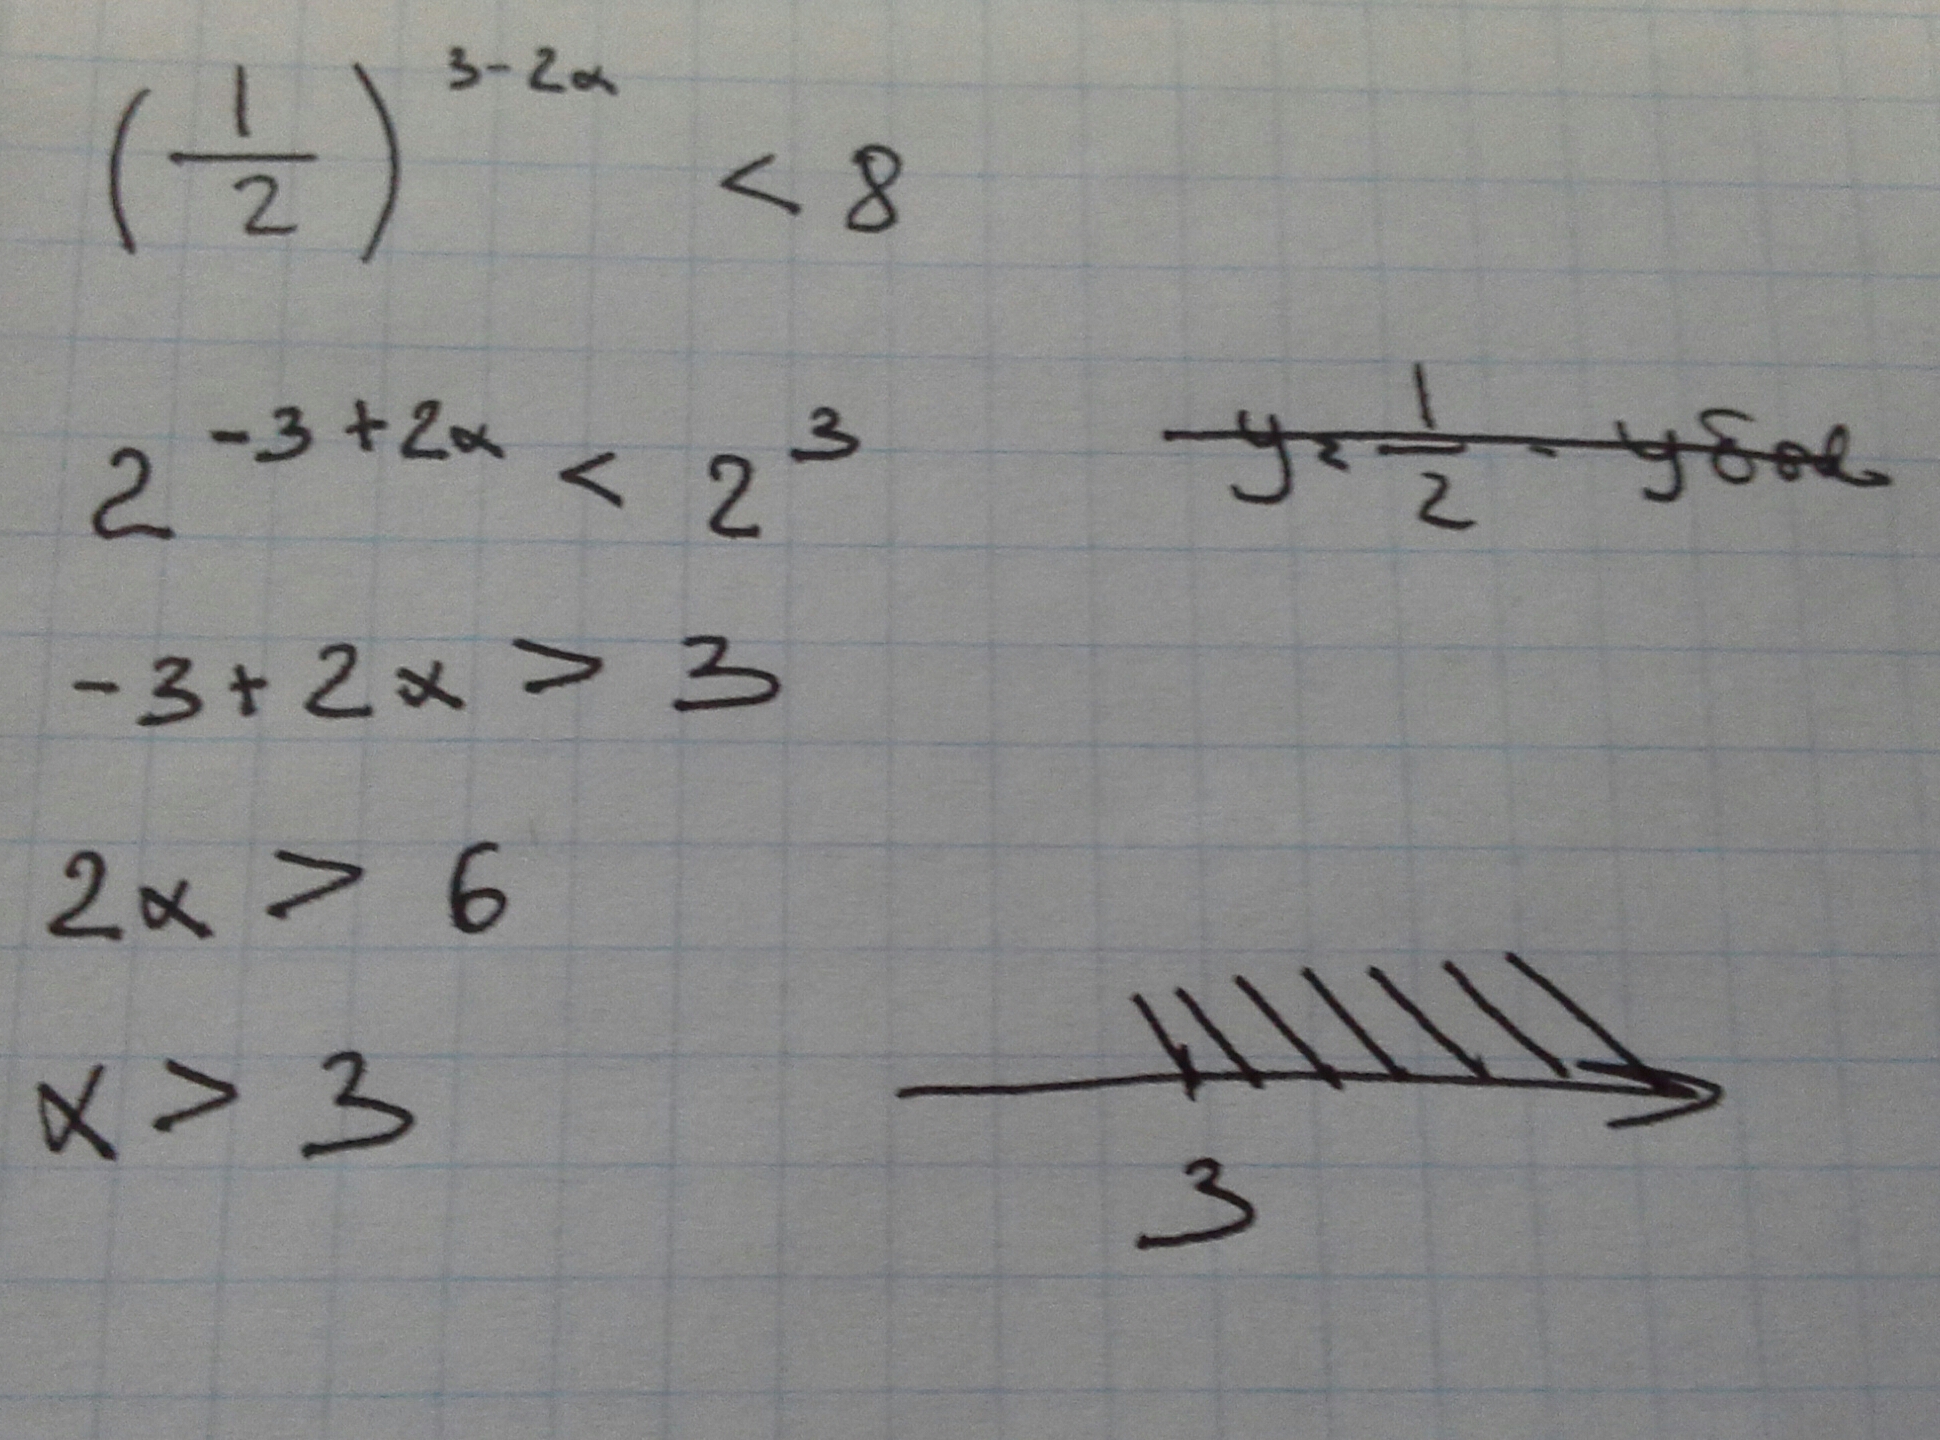 (1/2)^(3-2x) < 8
2^(-3+2x) < 2^3
y = 1/2 - убыв
-3+2x > 3
2x > 6
x > 3
3